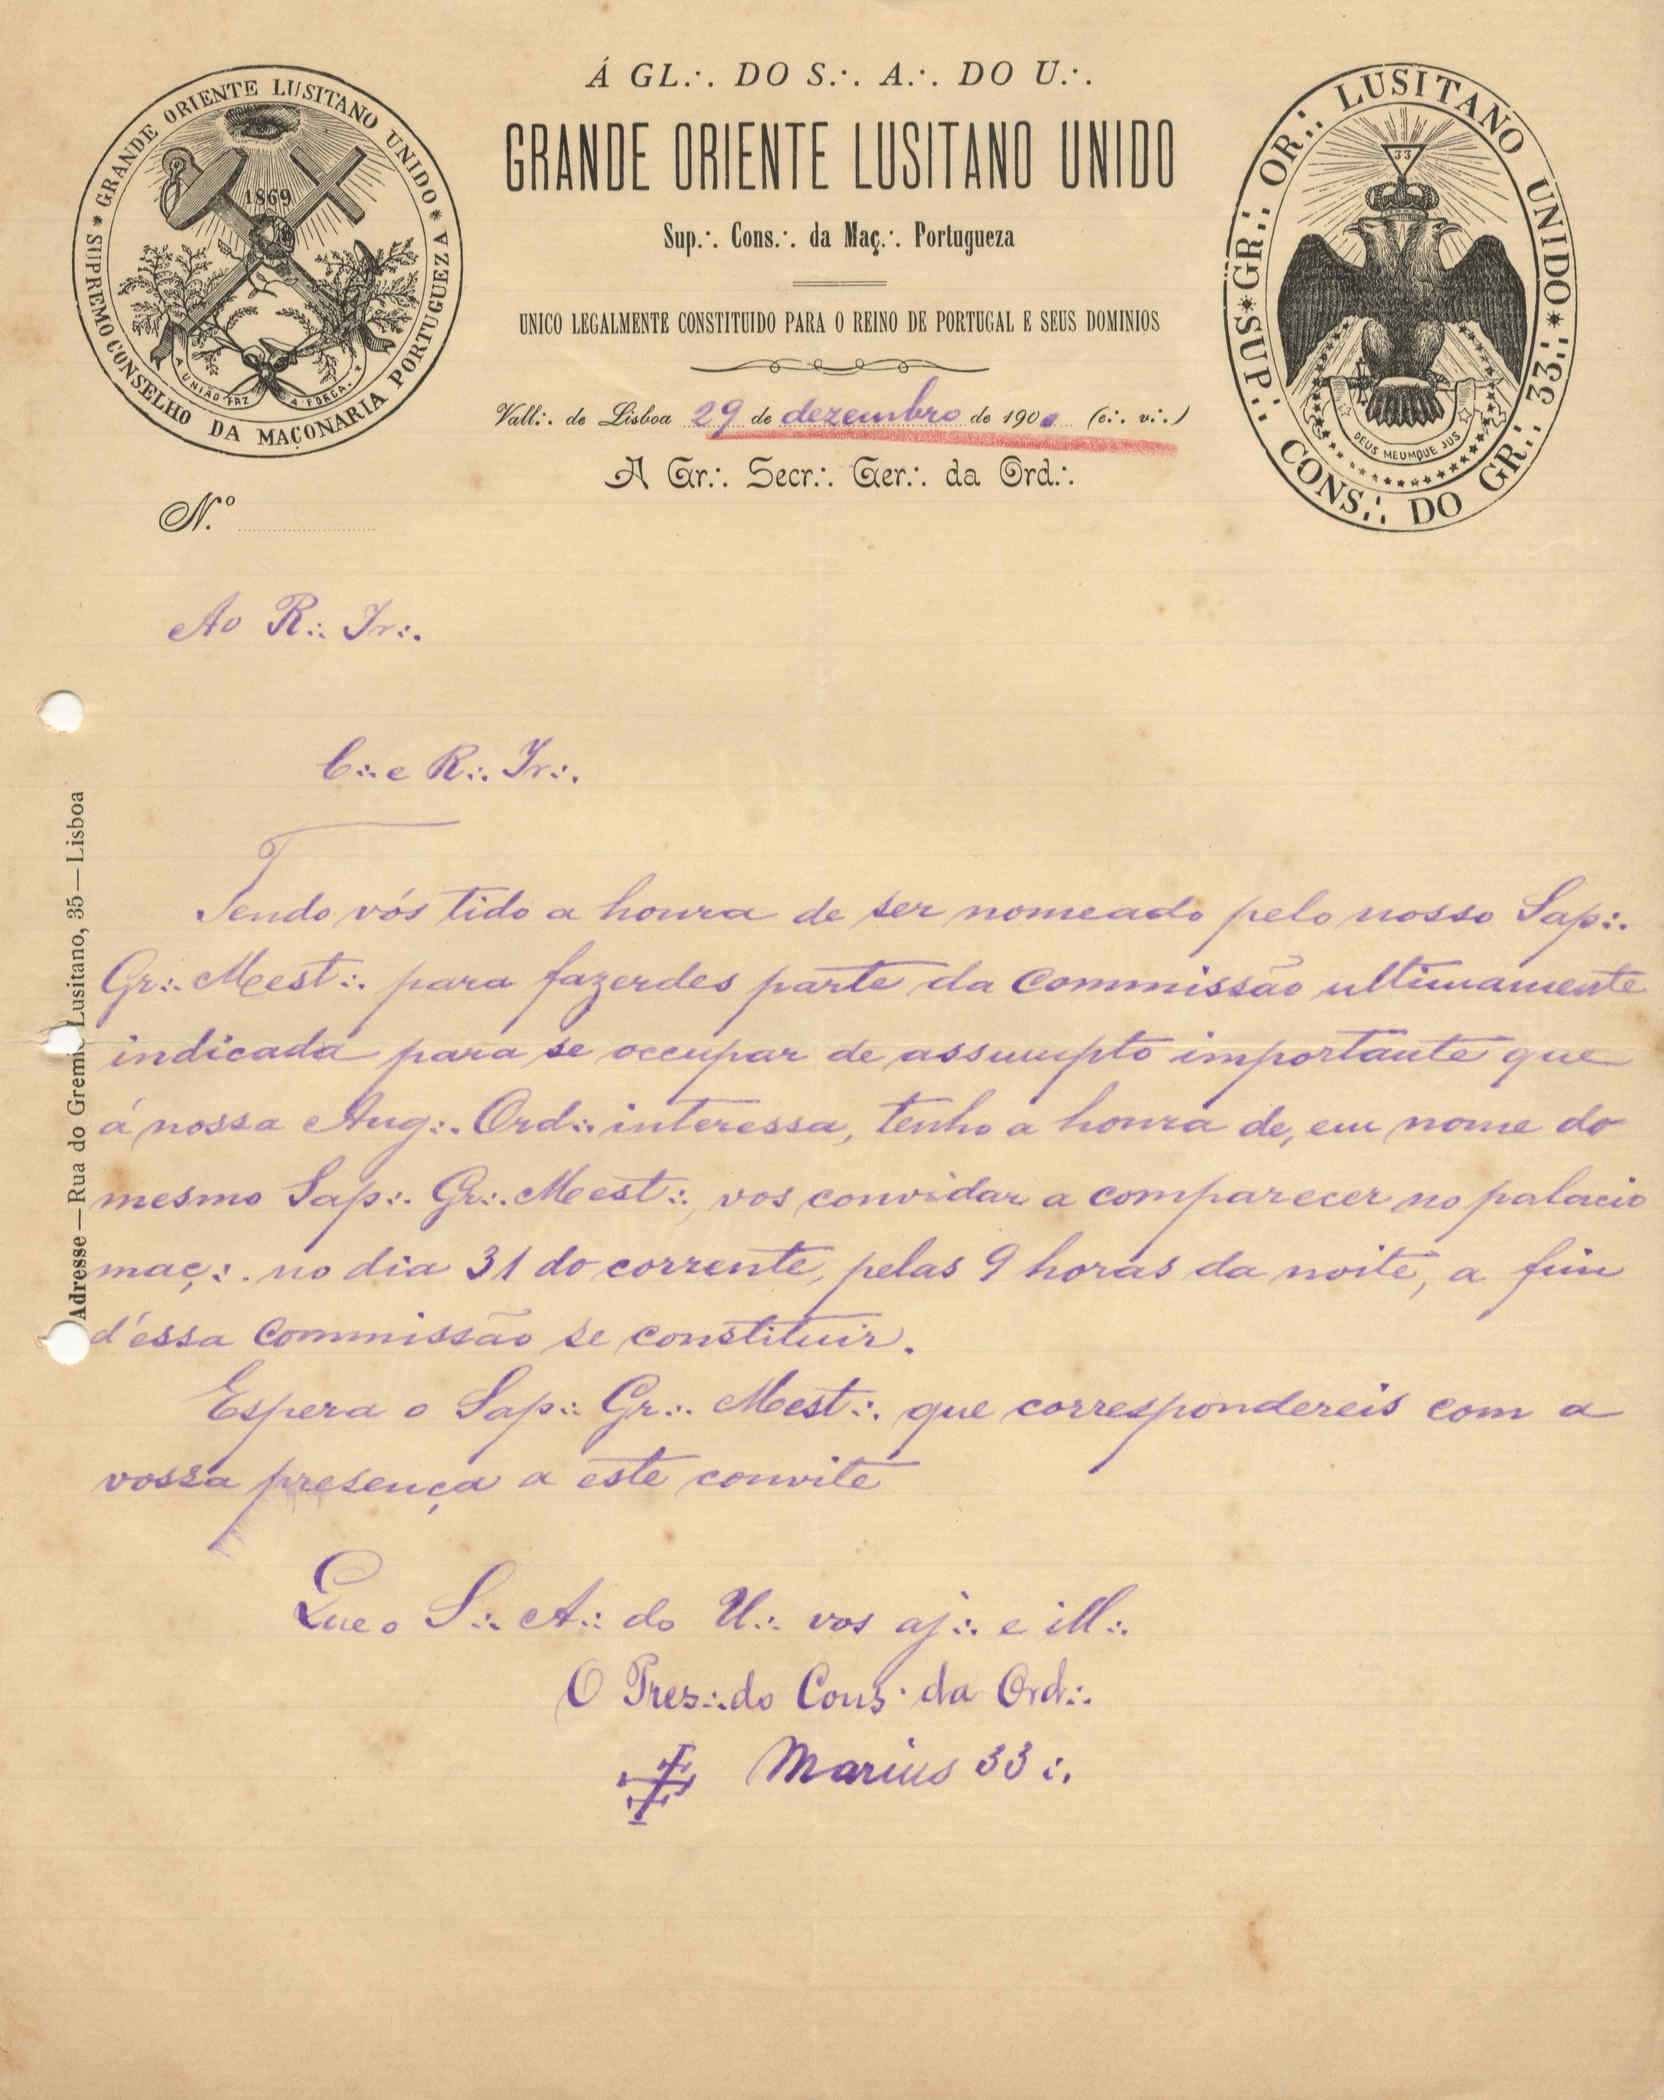 Á GL.·. DO S.·. A.·. DO U.·.
GRANDE ORIENTE LUSITANO UNIDO
Sup.·. Cons.·. da Maç.·. Portugueza
UNICO LEGALMENTE CONSTITUIDO PARA O REINO DE PORTUGAL E SEUS DOMINIOS
Vall.·. de Lisboa 29 de dezembro de 1900 (e.·. v.·.)
A Gr.·. Secr.·. Ger.·. da Ord.·.
GRANDE ORIENTE LUSITANO UNIDO
SUPREMO CONSELHO DA MAÇONARIA PORTUGUEZA
1869
A UNIÃO FAZ A FORÇA.
SUP.·. CONS.·. DO GR.·. 33.·.
GR.·. OR.·. LUSITANO UNIDO
33
DEUS MEUMQUE JUS
N.º
Adresse — Rua do Gremio Lusitano, 35 — Lisboa
Ao R.·. Ir.·.
C.·. e R.·. Ir.·.
Tendo vós tido a honra de ser nomeado pelo nosso Sap.·.
Gr.·. Mest.·. para fazerdes parte da Commissão ultimamente
indicada para se occupar de assumpto importante que
á nossa Aug.·. Ord.·. interessa, tenho a honra de, em nome do
mesmo Sap.·. Gr.·. Mest.·., vos convidar a comparecer no palacio
maç.·. no dia 31 do corrente, pelas 9 horas da noite, a fim
d'essa Commissão se constituir.
Espera o Sap.·. Gr.·. Mest.·. que correspondereis com a
vossa presença a este convite
Que o S.·. A.·. do U.·. vos aj.·. e ill.·.
O Pres.·. do Cons.· da Ord.·.
Marius 33.·.